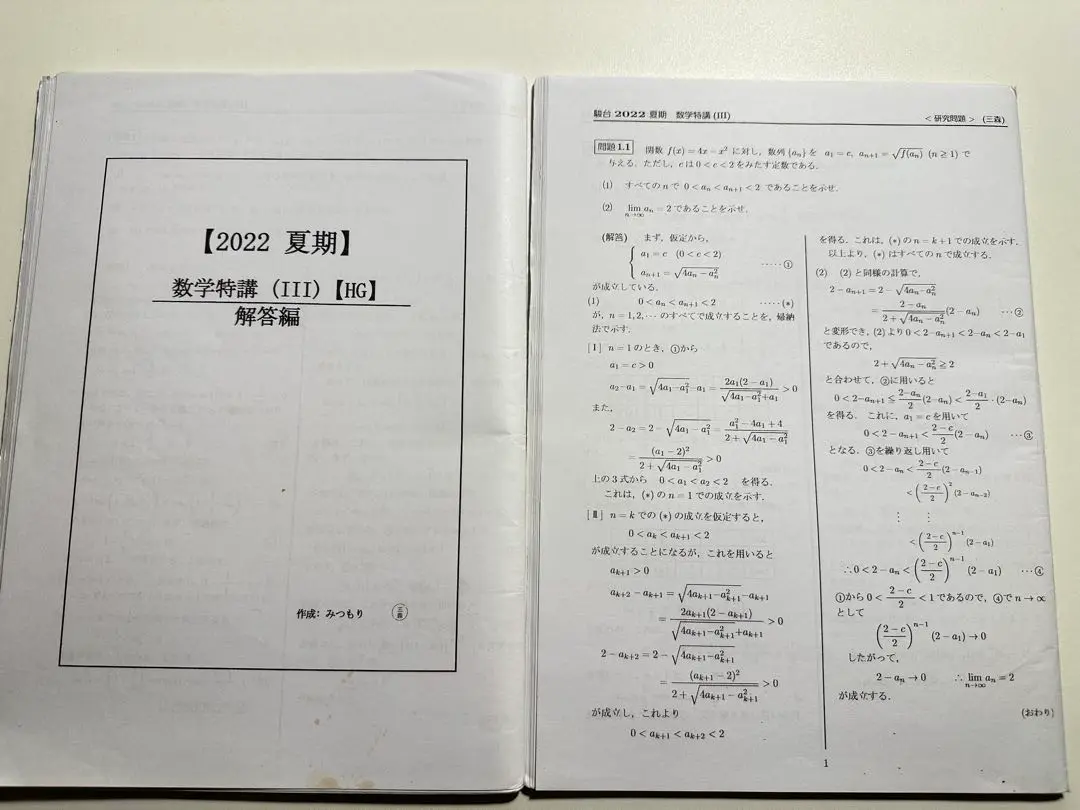 【2022 夏期】
数学特講 (III)【HG】
解答編
作成: みつもり 三森
駿台 2022 夏期 数学特講 (III) < 研究問題 > (三森)
問題 1.1 関数 f(x) = 4x − x² に対し, 数列 {aₙ} を a₁ = c, aₙ₊₁ = √(f(aₙ)) (n ≧ 1) で
与える. ただし, c は 0 < c < 2 をみたす定数である.
(1) すべての n で 0 < aₙ < aₙ₊₁ < 2 であることを示せ.
(2) lim_{n→∞} aₙ = 2 であることを示せ.
(解答) まず, 仮定から,
{ a₁ = c (0 < c < 2)
aₙ₊₁ = √(4aₙ − aₙ²) ·····①
が成立している.
(1) 0 < aₙ < aₙ₊₁ < 2 ·····(*)
が, n = 1, 2, ··· のすべてで成立することを, 帰納
法で示す.
[I] n = 1 のとき, ①から
a₁ = c > 0
a₂ − a₁ = √(4a₁ − a₁²) − a₁ = 2a₁(2 − a₁)/(√(4a₁ − a₁²) + a₁) > 0
また,
2 − a₂ = 2 − √(4a₁ − a₁²) = (a₁² − 4a₁ + 4)/(2 + √(4a₁ − a₁²))
= (a₁ − 2)²/(2 + √(4a₁ − a₁²)) > 0
上の 3 式から 0 < a₁ < a₂ < 2 を得る.
これは, (*) の n = 1 での成立を示す.
[II] n = k での (*) の成立を仮定すると,
0 < aₖ < aₖ₊₁ < 2
が成立することになるが, これを用いると
aₖ₊₁ > 0
aₖ₊₂ − aₖ₊₁ = √(4aₖ₊₁ − aₖ₊₁²) − aₖ₊₁
= 2aₖ₊₁(2 − aₖ₊₁)/(√(4aₖ₊₁ − aₖ₊₁²) + aₖ₊₁) > 0
2 − aₖ₊₂ = 2 − √(4aₖ₊₁ − aₖ₊₁²)
= (aₖ₊₁ − 2)²/(2 + √(4aₖ₊₁ − aₖ₊₁²)) > 0
が成立し, これより
0 < aₖ₊₁ < aₖ₊₂ < 2
を得る. これは, (*) の n = k + 1 での成立を示す.
以上より, (*) はすべての n で成立する.
(2) (2) と同様の計算で,
2 − aₙ₊₁ = 2 − √(4aₙ − aₙ²)
= (2 − aₙ)/(2 + √(4aₙ − aₙ²)) (2 − aₙ) ···②
と変形でき, (2) より 0 < 2 − aₙ₊₁ < 2 − aₙ < 2 − a₁
であるので,
2 + √(4aₙ − aₙ²) ≧ 2
と合わせて, ②に用いると
0 < 2 − aₙ₊₁ ≦ (2 − aₙ)/2 (2 − aₙ) < (2 − a₁)/2 · (2 − aₙ)
を得る. これに, a₁ = c を用いて
0 < 2 − aₙ₊₁ < (2 − c)/2 (2 − aₙ) ···③
となる. ③を繰り返し用いて
0 < 2 − aₙ < (2 − c)/2 (2 − aₙ₋₁)
< ((2 − c)/2)² (2 − aₙ₋₂)
⋮ ⋮
< ((2 − c)/2)ⁿ⁻¹ (2 − a₁)
∴ 0 < 2 − aₙ < ((2 − c)/2)ⁿ⁻¹ (2 − a₁) ···④
①から 0 < (2 − c)/2 < 1 であるので, ④で n → ∞
として
((2 − c)/2)ⁿ⁻¹ (2 − a₁) → 0
したがって,
2 − aₙ → 0 ∴ lim_{n→∞} aₙ = 2
が成立する.
(おわり)
1